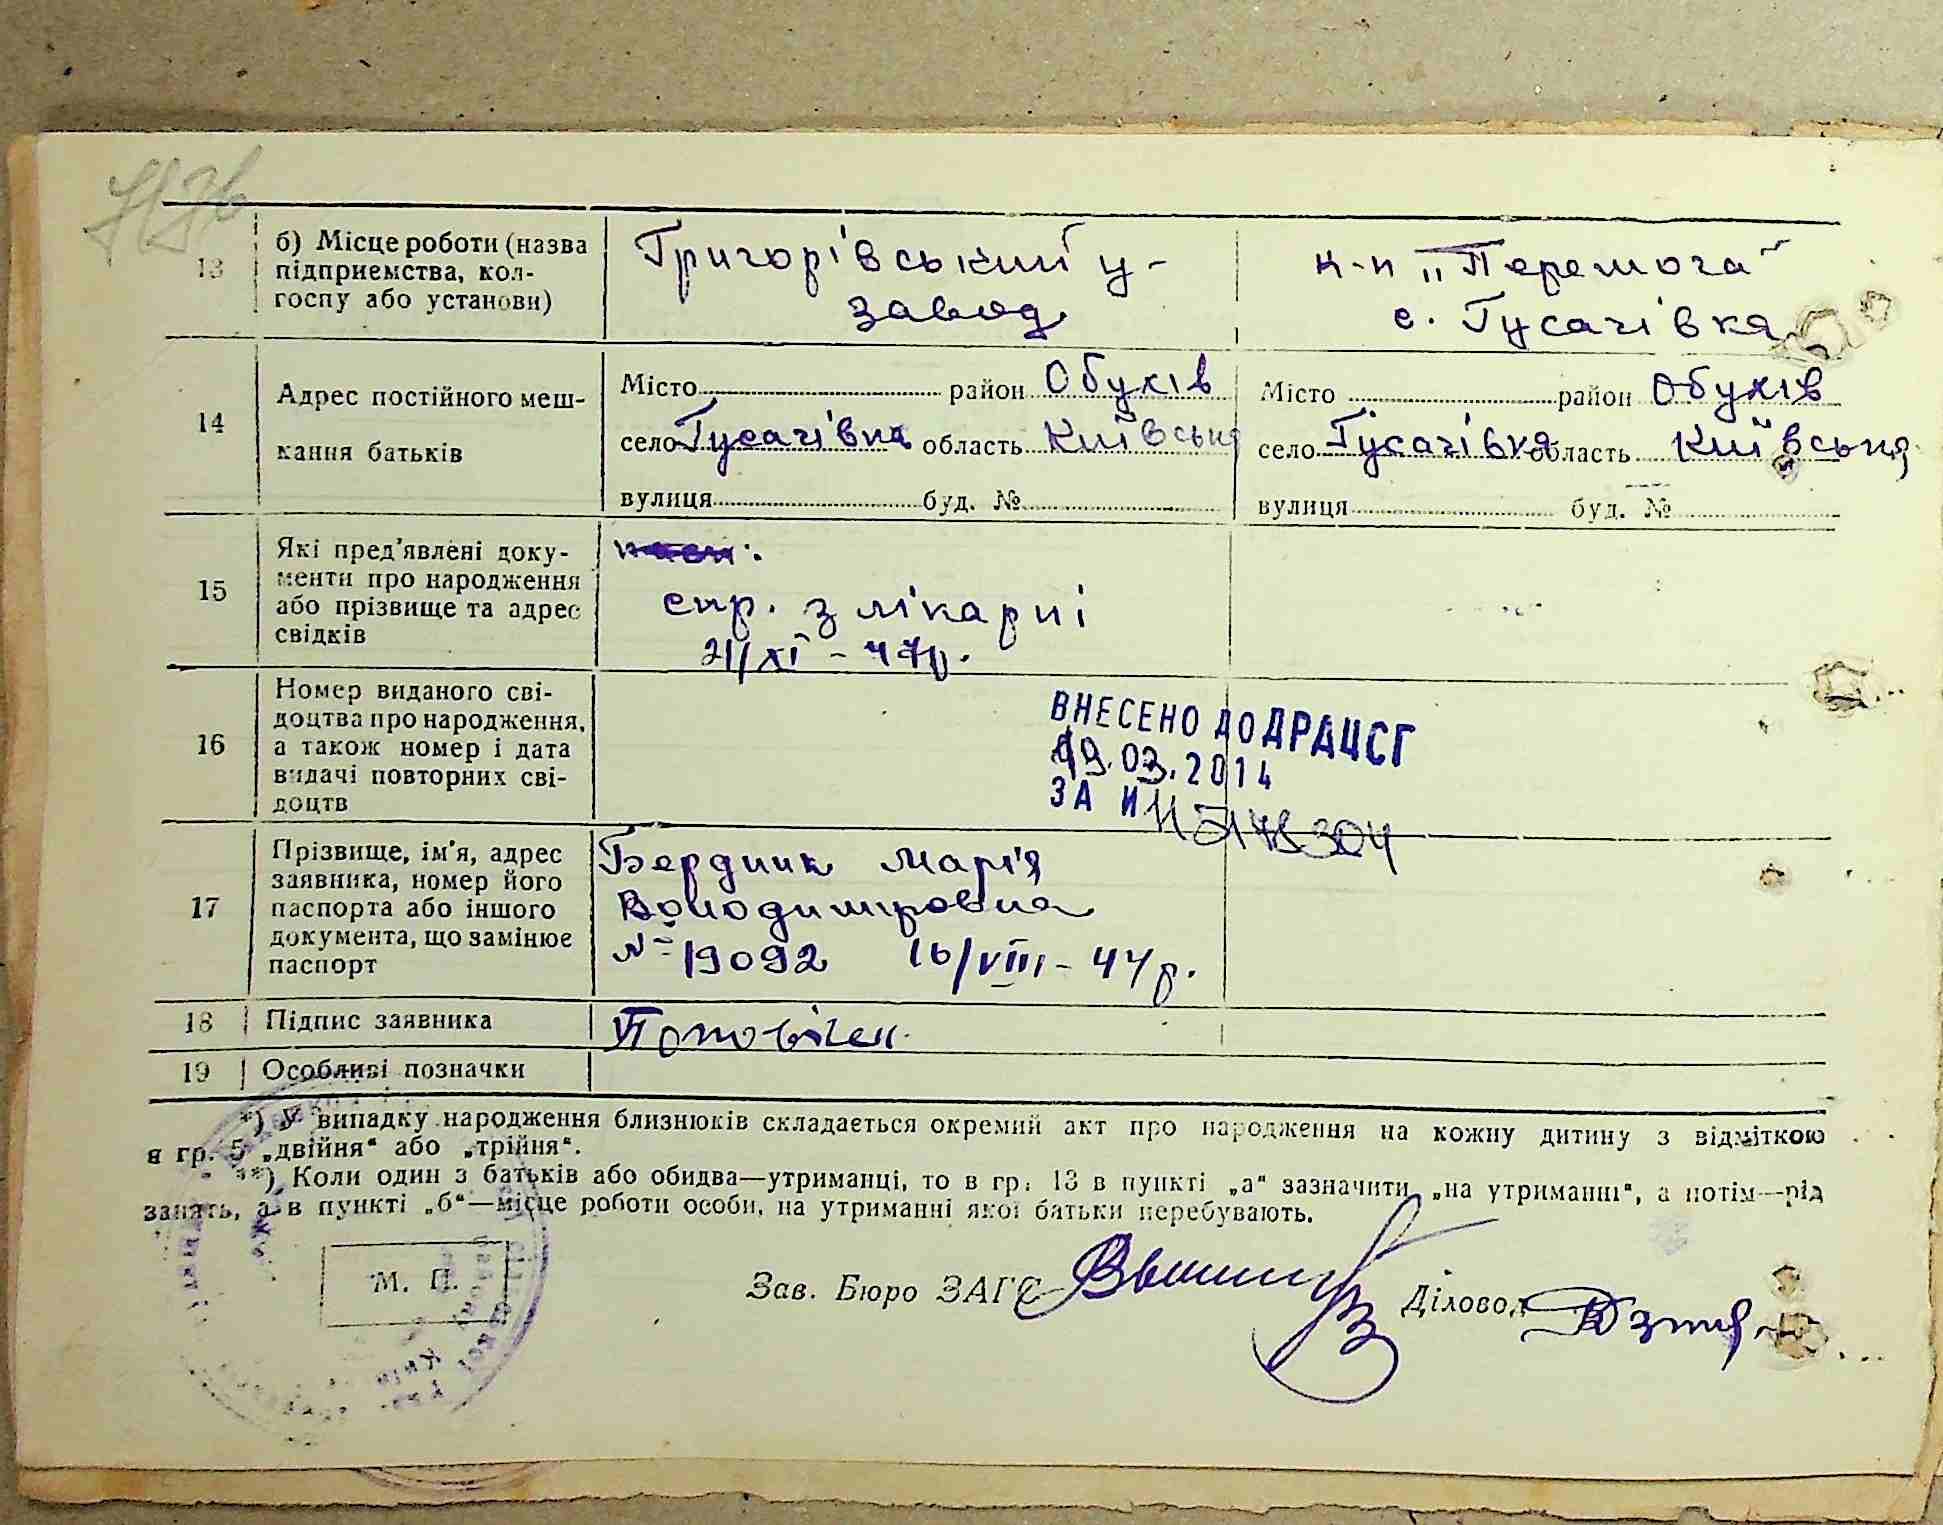 13 б) Місце роботи (назва підприємства, колгоспу або установи)
Григорівський ц-
завод
к-п „Перемога"
с. Гусачівка
14 Адрес постійного меш-
кання батьків
Місто район Обухів
село Гусачівка область Київська
вулиця буд. №
Місто район Обухів
село Гусачівка область Київська
вулиця буд. №
15 Які пред'явлені доку-
менти про народження
або прізвище та адрес
свідків
спр. з лікарні
21/XI - 47р.
16 Номер виданого сві-
доцтва про народження,
а також номер і дата
видачі повторних сві-
доцтв
ВНЕСЕНО ДО ДРАЦСГ
19.03.2014
ЗА
17 Прізвище, ім'я, адрес
заявника, номер його
паспорта або іншого
документа, що замінює
паспорт
Бердник Марія
Володимировна
№ 19092 16/VIII - 44р.
18 Підпис заявника
19 Особливі позначки
*) У випадку народження близнюків складається окремий акт про народження на кожну дитину з відміткою
в гр. 5 „двійня" або „трійня".
**) Коли один з батьків або обидва—утриманці, то в гр. 13 в пункті „а" зазначити „на утриманні", а потім—рід
занять, а в пункті „б"—місце роботи особи, на утриманні якої батьки перебувають.
М. П.
Зав. Бюро ЗАГС
Діловод